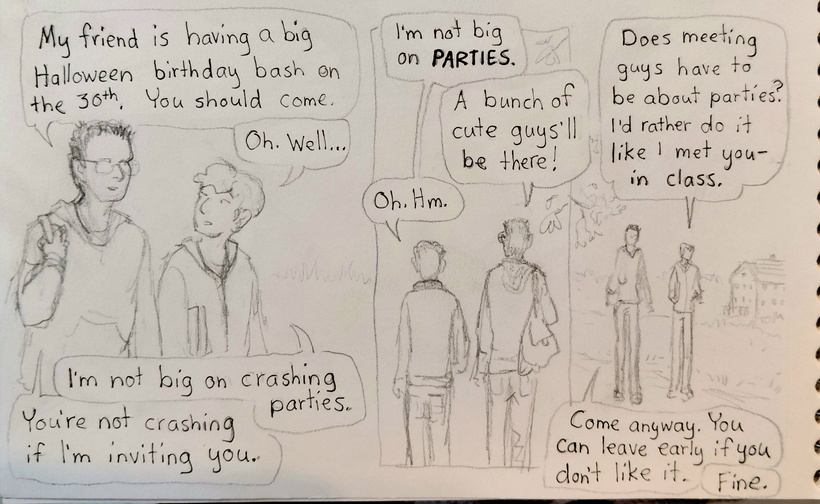 My friend is having a big
Halloween birthday bash on
the 30th. You should come.
Oh. Well...
I'm not big on crashing
parties.
You're not crashing
if I'm inviting you.
I'm not big
on PARTIES.
A bunch of
cute guys'll
be there!
Oh. Hm.
Does meeting
guys have to
be about parties?
I'd rather do it
like I met you-
in class.
Come anyway. You
can leave early if you
don't like it.
Fine.